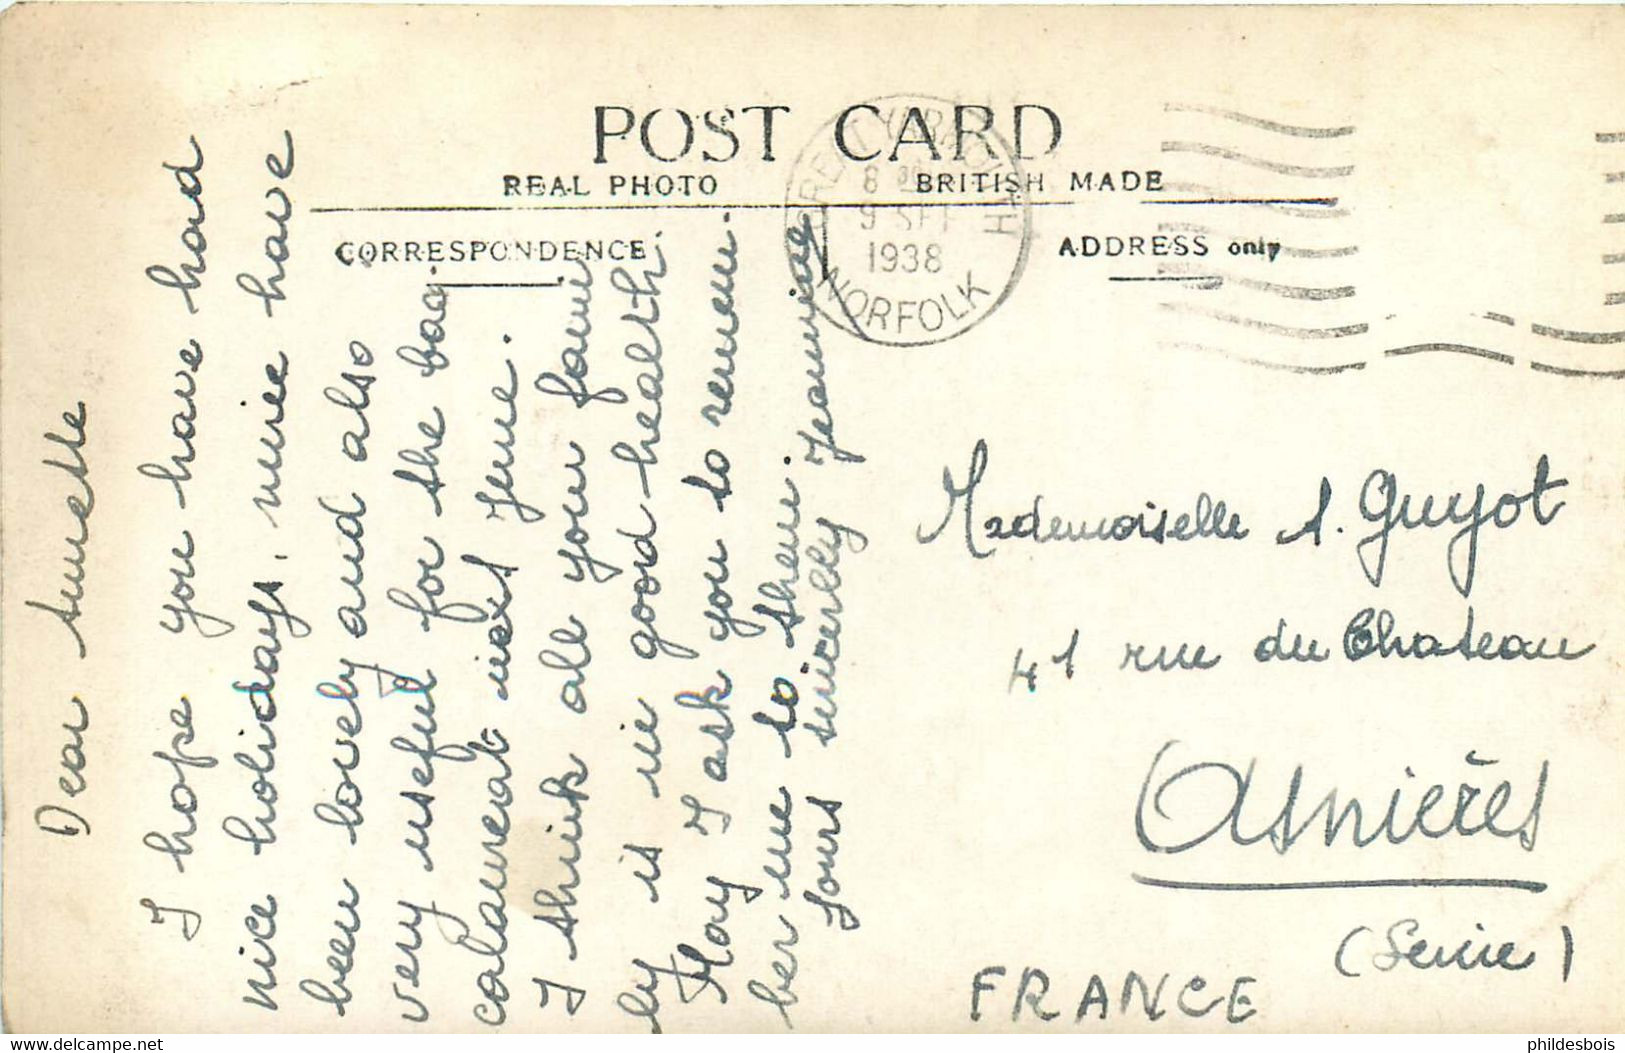 POST CARD
REAL PHOTO BRITISH MADE
CORRESPONDENCE ADDRESS only
GREAT YARMOUTH
8 30
9 SEP
1938
NORFOLK
Dear
I hope you have had
nice holidays, mine have
been lovely and also
very useful for the bac
next June.
I think all your fami
ly is in good health.
May I ask you to remem-
ber me to them.
Yours sincerely Jeannine
Mademoiselle A. Guyot
41 rue du Chateau
Asnières
(Seine)
FRANCE
www.delcampe.net
phildesbois